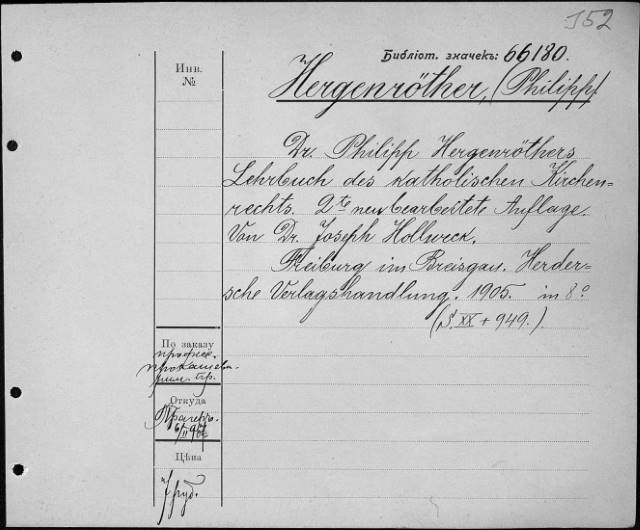 J52
Библіот. значекъ: 66180.
Hergenröther, (Philipp)
Инв.
№
Dr. Philipp Hergenröthers
Lehrbuch des katholischen Kirchen=
rechts. 2te neu bearbeitete Auflage.
Von Dr. Joseph Hollweck.
Freiburg im Breisgau. Herder=
sche Verlagshandlung. 1905. in 8°
(S. XX + 949.)
По заказу
Откуда
6/II
Цѣна
7 руб.